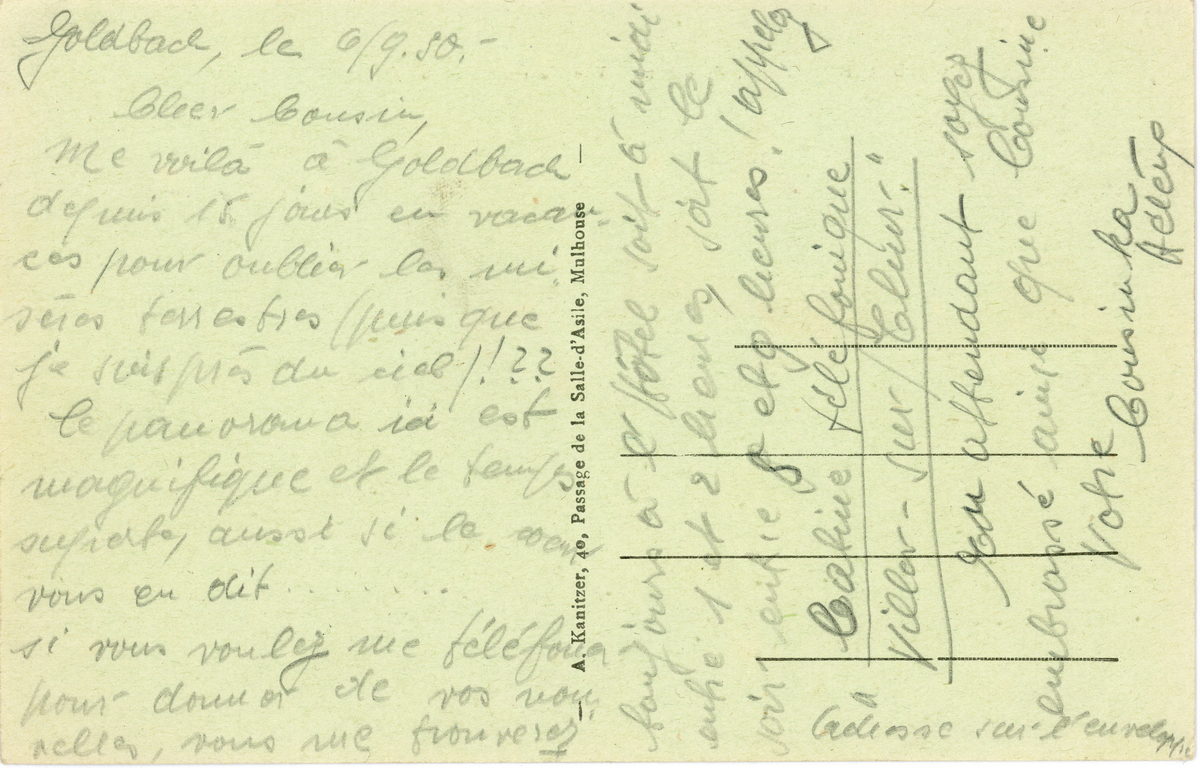 Goldbach, le 6/9.50.-
Cher Cousin,
Me voilà à Goldbach
depuis 15 jours en vacan-
ces pour oublier les mi-
sères terrestres (puisque
je suis près du ciel)!??
Le panorama ici est
magnifique et le temps
superbe, aussi si le coeur
vous en dit........
si vous voulez me téléfoner
pour donner de vos nou-
velles, vous me trouverez
A. Kanitzer, 40, Passage de la Salle-d'Asile, Mulhouse
toujours à l'Hôtel soit à midi
entre 1 et 2 heures, soit le
soir entre 8 et 9 heures. (appelez
Cabine téléfonique
"Viller-sur/Elur."
En attendant soyez
embrassé ainsi que Cousine
Votre
Cousinka
(adresse sur l'enveloppe